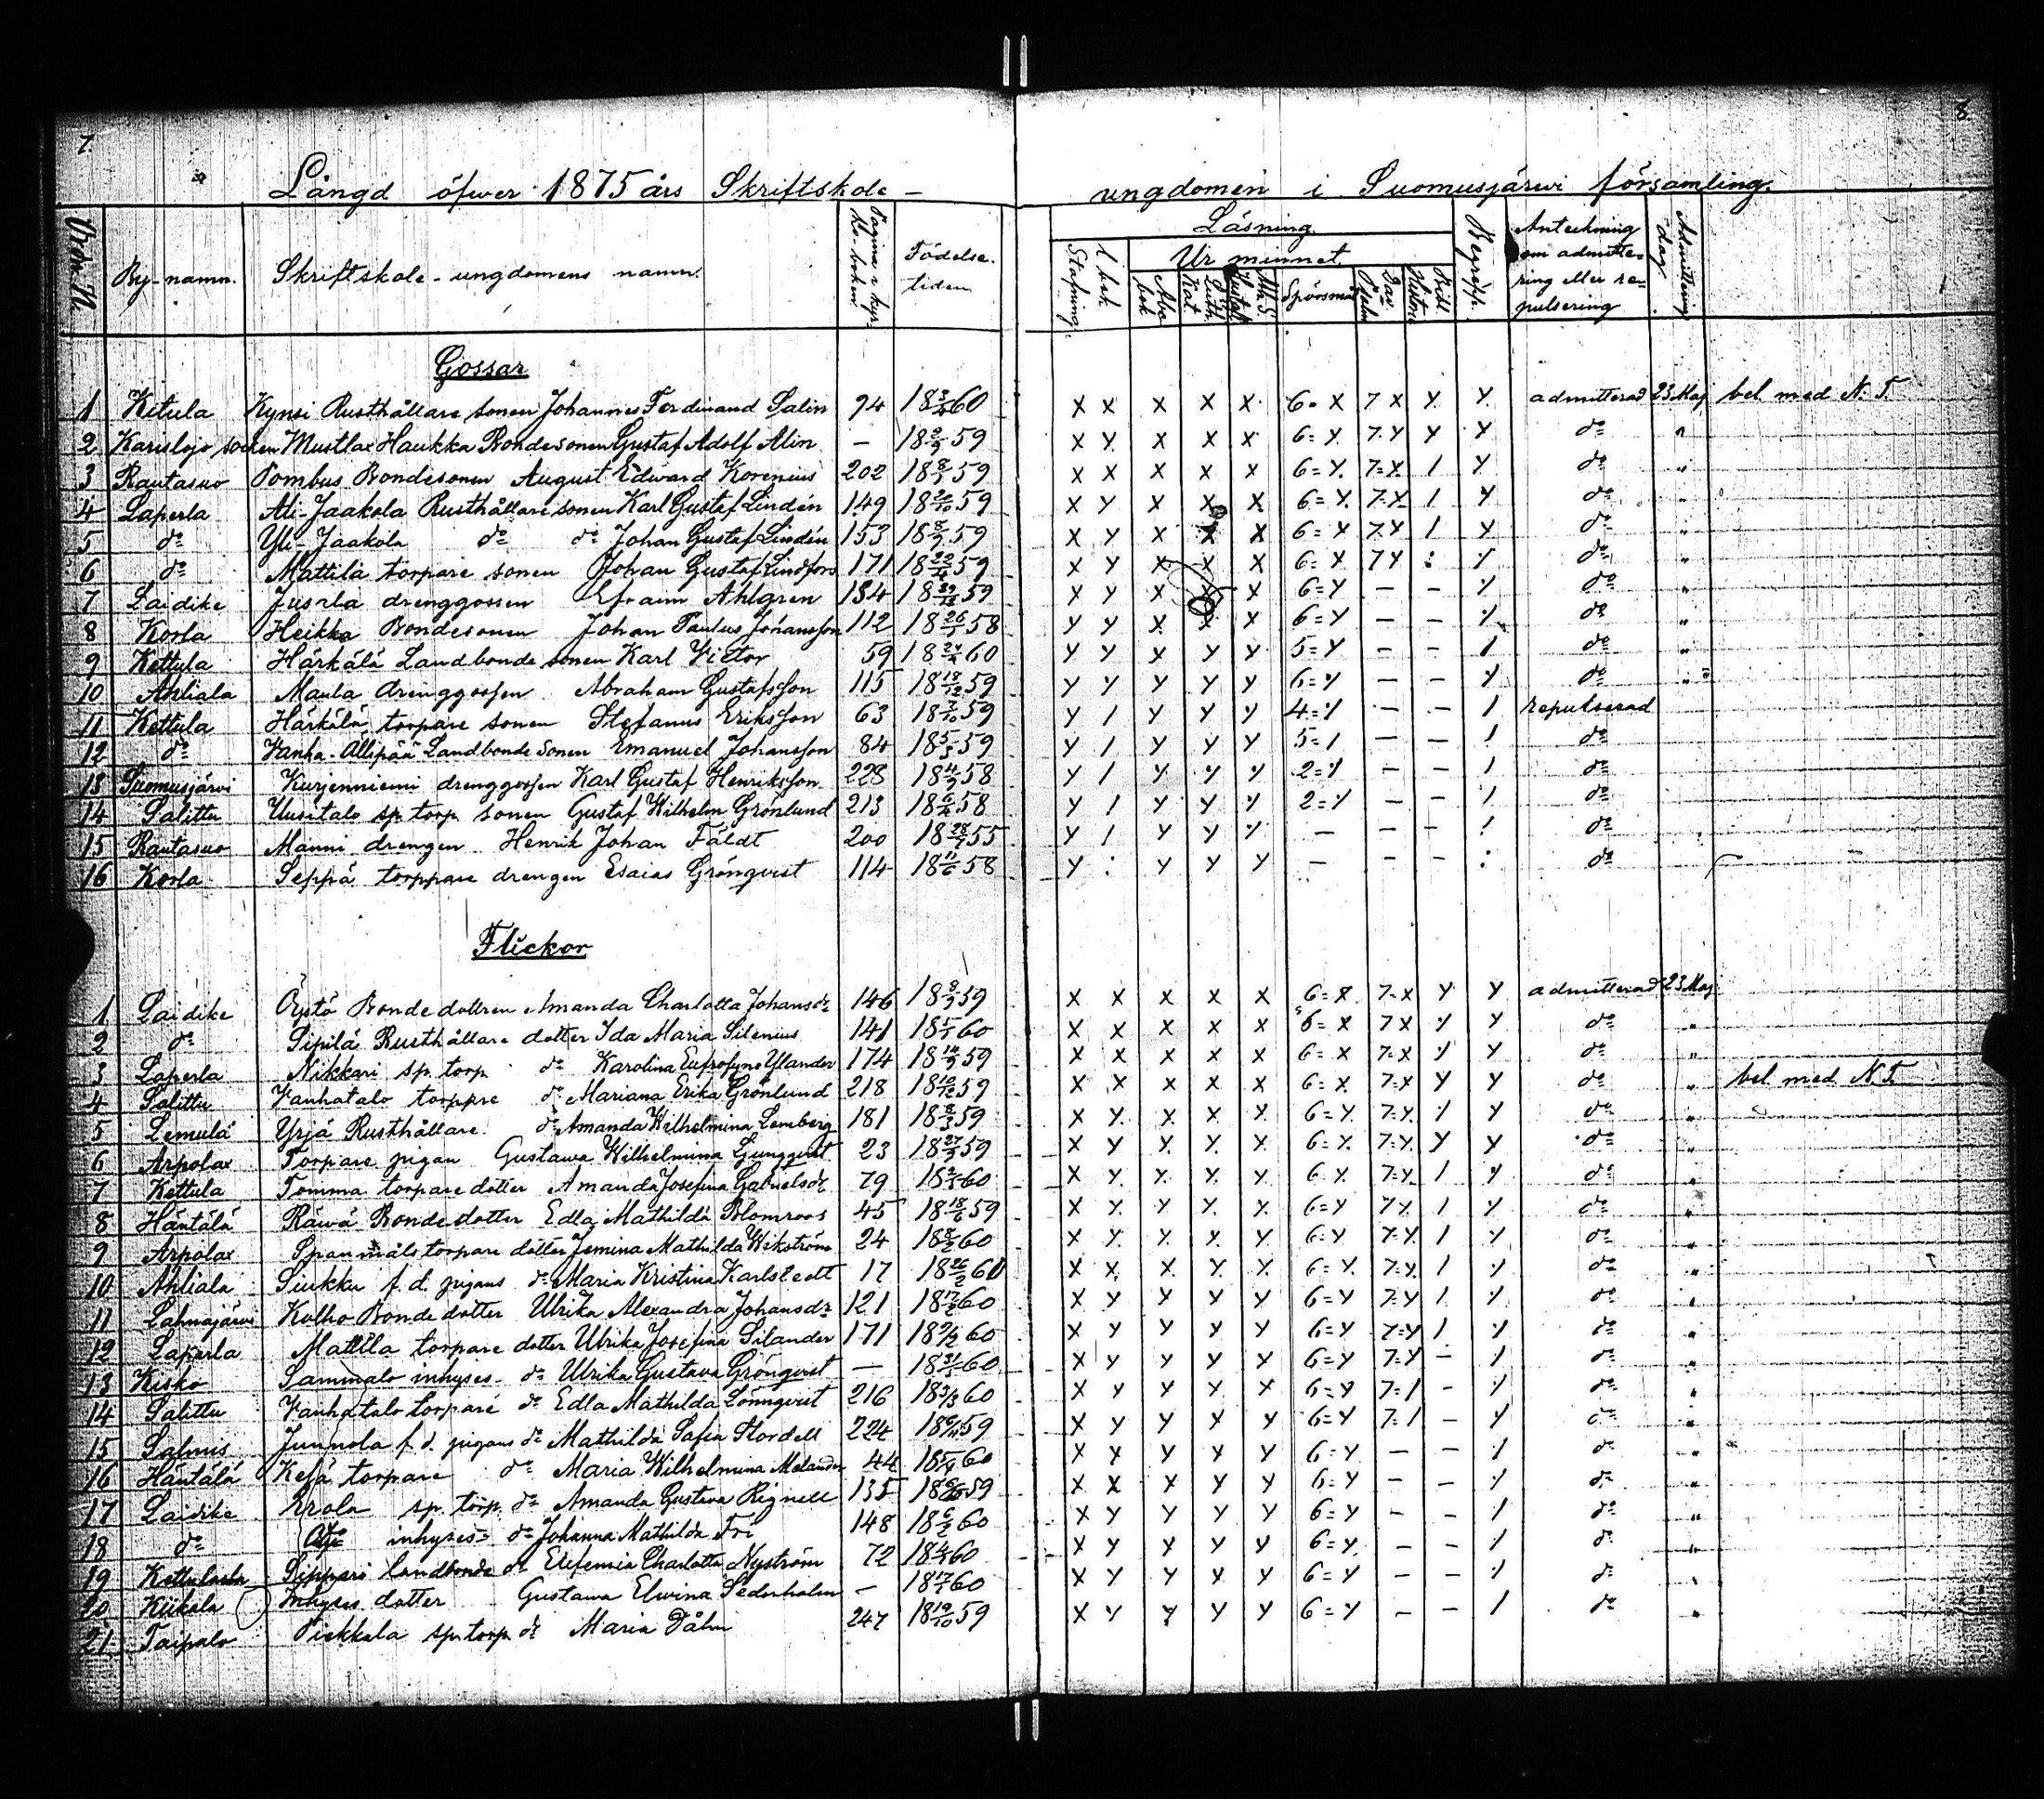 7. 8.
Längd öfwer 1875 års Skriftskole- ungdomen i Suomusjärwi församling.
Ordn. N. By-namn. Skriftskole-ungdomens namn. Pagina i kyrko-boken Födelse-tiden Stafning. I bok Läsning. Ur minnet. Abc bok Luth. Kat. Spörsmål Dav. Psalm Bibl. Historia Begrepp. Anteckning om admitte-ring eller re-pulsering Admitterings dag.
Gossar
1 Kitula Kynsi Rusthållare sonen Johannes Ferdinand Salin 94 18 60 X X X X X 6= X 7 X Y Y admitterad 23 Maj bel med N. T.
2 Karislojo socken Mustlax Haukka Bondesonen Gustaf Adolf Alin — 18 2/9 59 X Y X X X 6= Y 7. Y Y Y do "
3 Rautasuo Pombus Bondesonen August Edward Korenius 202 18 59 X X X X X 6= Y. 7=X 1 Y do "
4 Laperla Ali-Jaakola Rusthållare sonen Karl Gustaf Lindén 149 18 20/10 59 X Y X X X 6= Y. 7=X 1 Y do "
5 do Yli-Jaakola do do Johan Gustaf Lindén 153 18 59 X Y X X X 6= Y 7 Y 1 Y do "
6 do Mattila torpare sonen Johan Gustaf Lindfors 171 18 22/4 59 X Y X X X 6= X 7 Y : Y do "
7 Laidike Jusela drenggossen Efraim Ahlgren 134 18 59 X Y X X X 6=Y — — Y do "
8 Korla Heikka Bondesonen Johan Paulus Johansson 112 18 58 Y Y X X X 6=Y — — Y do "
9 Kettula Härkälä Landbonde sonen Karl Victor 59 18 60 Y Y X Y Y 5=Y — — 1 do "
10 Ahliala Maula drenggossen Abraham Gustafsson 115 18 18/12 59 Y Y Y Y Y 6=Y — — Y do "
11 Kettula Härkälä torpare sonen Stefanus Eriksson 63 18 7/10 59 Y 1 Y Y Y 4=Y — — 1 repulserad
12 do Vanha-Ällipää Landbonde sonen Emanuel Johansson 84 18 59 Y 1 Y Y Y 5=1 — — 1 do
13 Suomusjärvi Kurjenniemi drenggossen Karl Gustaf Henriksson 228 18 58 Y 1 Y Y Y 2=Y — — 1 do
14 Salittu Uusitalo sp torp sonen Gustaf Wilhelm Grönlund 213 18 58 Y 1 Y Y Y 2=Y — — 1 do
15 Rautasuo Manni drengen Henrik Johan Fäldt 200 18 55 Y 1 Y Y Y — — — ! do
16 Korla Seppä torppare drengen Esaias Grönqvist 114 18 11/6 58 Y : Y Y Y — — — : do
Flickor
1 Laidike Öystö Bonde dottren Amanda Charlotta Johansdr 146 18 59 X X X X X 6=X 7=X Y Y admitterad 23 Maj
2 do Sipilä Rusthållare dotter Ida Maria Silenius 141 18 60 X X X X X 6=X 7 X Y Y do "
3 Laperla Nikkari sp. torp. do Karolina Eufrosyne Ylander 174 18 14/9 59 X X X X X 6= X 7=X Y Y do "
4 Salittu Vanhatalo torppre do Mariana Erika Grönlund 218 18 10/12 59 X X X X X 6= X. 7=X Y Y do " bel med N. T.
5 Lemulä Yrjä Rusthållare. do Amanda Wilhelmina Lemberg 181 18 8/3 59 X Y. X X Y. 6=Y. 7=Y. Y Y do "
6 Arpolax Torpare pigan Gustawa Wilhelmina Ljungqvist 23 18 59 X Y Y. Y. X. 6=Y. 7=Y. Y Y do "
7 Kettula Tomma torpare dotter Amanda Josefina Gabrielsdr 79 18 60 X Y. Y. Y. X. 6 Y. 7=Y. 1 Y do "
8 Häntälä Räwä Bonde dotter Edla Mathilda Blomroos 45 18 18/6 59 X Y. Y. Y. Y. 6=Y 7 Y. 1 Y do "
9 Arpolax Spanmåls torpare dotter Jemina Mathilda Wikström 24 18 8/2 60 X Y. Y. Y. Y. 6=Y 7=Y. 1 Y do "
10 Ahliala Suikku f. d. pigans do Maria Kristina Karlstedt 17 18 26/2 60 X X. X. Y. X. 6=Y. 7=Y. 1 Y do "
11 Lahnajärvi Kolho Bonde dotter Ulrika Alexandra Johansdr 121 18 17/2 60 X Y Y Y Y 6=Y 7=Y 1 Y do "
12 Laperla Mattila torpare dotter Ulrika Josefina Silander 171 18 9/2 60 X Y Y Y Y 6=Y 7=Y 1 Y do "
13 Kisko Sammalo inhyses- do Ulrika Gustava Grönqvist — 18 60 X Y Y Y X 6=Y 7=Y — 1 do "
14 Salittu Vanhatalo torpare do Edla Mathilda Lönnqvist 216 18 3/3 60 X Y Y Y X 6=Y 7=1 - Y do "
15 Salmis Junnola f. d. pigans do Mathilda Sofia Stordell 224 18 59 X Y Y X Y 6=Y 7=1 — Y do "
16 Häntälä Kesä torpare do Maria Wilhelmina Melander 44 18 60 X X Y Y Y 6=Y — — 1 do "
17 Laidike Erola sp. torp. do Amanda Gustava Rignell 135 18 59 X X X Y Y 6=Y — — Y do "
18 do inhyses- do Johanna Mathilda Fri 148 18 6/2 60 X Y Y Y Y 6=Y — — 1 do "
19 Sippari landbonde dr Eufemia Charlotta Nyström 72 18 60 X Y Y Y Y 6=Y. — — 1 do "
20 Kiikala Inhyses dotter Gustawa Elwina Sederholm — 18 60 X Y Y Y Y 6=Y — — Y do "
21. Taipalo Piekkala sp. torp. dr Maria Dålm 247 18 19/10 59 X Y Y Y Y 6=Y — — 1 do "